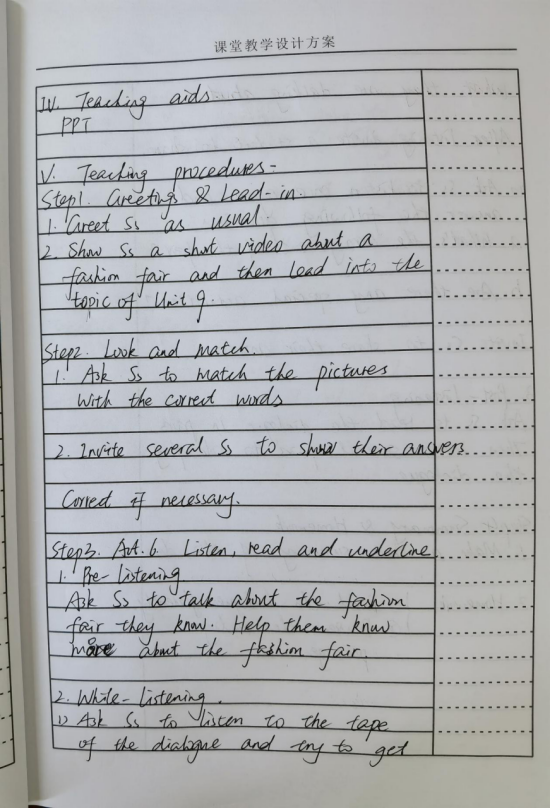 课堂教学设计方案
IV. Teaching aids
PPT
V. Teaching procedures-
Step1. Greetings & Lead-in
1. Greet Ss as usual.
2. Show Ss a short video about a
fashion fair and then lead into the
topic of Unit 9.
Step2. Look and match.
1. Ask Ss to match the pictures
with the correct words
2. Invite several Ss to show their answers
Correct if necessary.
Step3. Act. 6. Listen, read and underline
1. Pre-listening
Ask Ss to talk about the fashion
fair they know. Help them know
more about the fashion fair.
2. While-listening.
1) Ask Ss to listen to the tape
of the dialogue and try to get